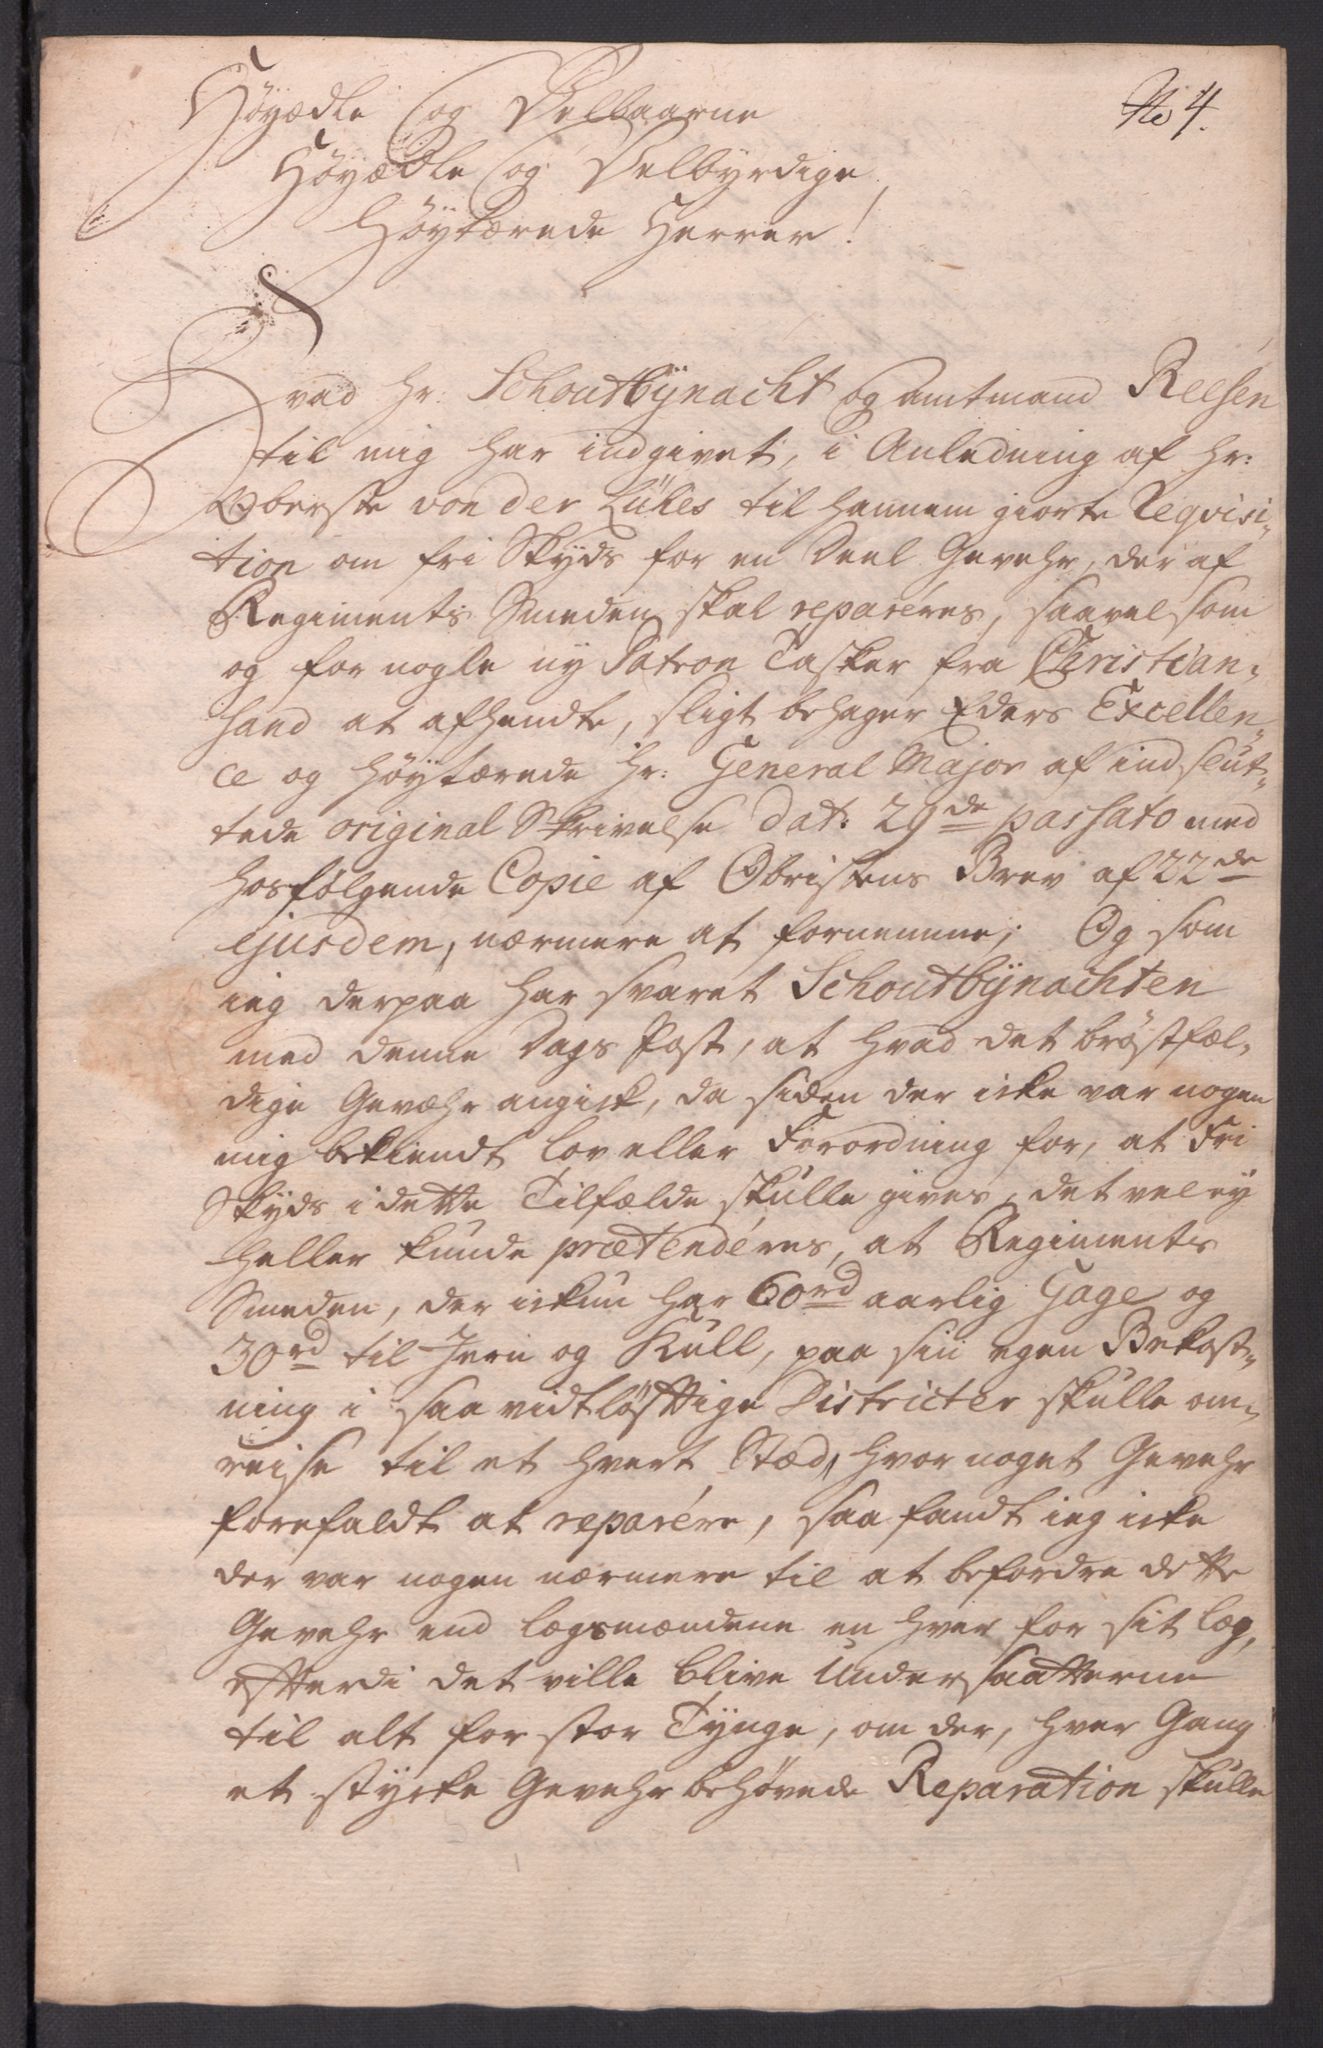 No 4.
Höyædle og Velbaarne
Höyædle og Velbyrdige
Höytærede Herrer!
Hvad Hr: Schoutbÿnacht og amtmand Reesen
til mig har indgivet, i Anledning af Hr:
Oberste von der Lühes til hannem giorte Reqvisi-
tion om fri Skÿds for en Deel Gevehr, der af
Regiments Smeden skal reparéres, saavel som
og for nogle ny Patron Tasker fra Christian-
sand at afhendte, sligt behager Eders Excellen-
ce og höytærede Hr: General Major af indslut-
tede original Skrivelse dat: 29de passato med
hosfølgende Copie af Obristens Brev af 22de
ejusdem, nærmere at fornemme; Og som
ieg derpaa har svaret Schoutbÿnachten
med denne Dags Post, at hvad det bröstfæl-
dige Gevæhr angick, da siden der icke var nogen
mig bekiendt lov eller Forordning for, at Fri
Skÿds i dette Tilfælde skulle gives, det vel eÿ
heller kunde prætendéres, at Regiments
Smeden, der ickun har 60rd aarlig Gage og
30rd til Jern og Kull, paa sin egen Bekost-
ning i saa vidtløftige Districter skulle om-
reise til et hvert Stæd, hvor noget Gevehr
forefaldt at reparére, saa fandt ieg icke
der var nogen nærmere til at befordre dette
Gevehr end lægsmændene en hver for sit læg,
efterdi det ville blive Undersaatterne
til alt for stor Tÿnge, om der, hver Gang
et styrke Gevehr behøvede Reparation skulle